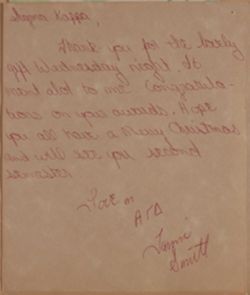 Sigma Kappa,
Thank you for the lovely
gift Wednesday night. It
ment alot to me. Congratula-
tions on your awards. Hope
you all have a Merry Christmas
and will see you second
semester.
Love in
Tammi
Smith